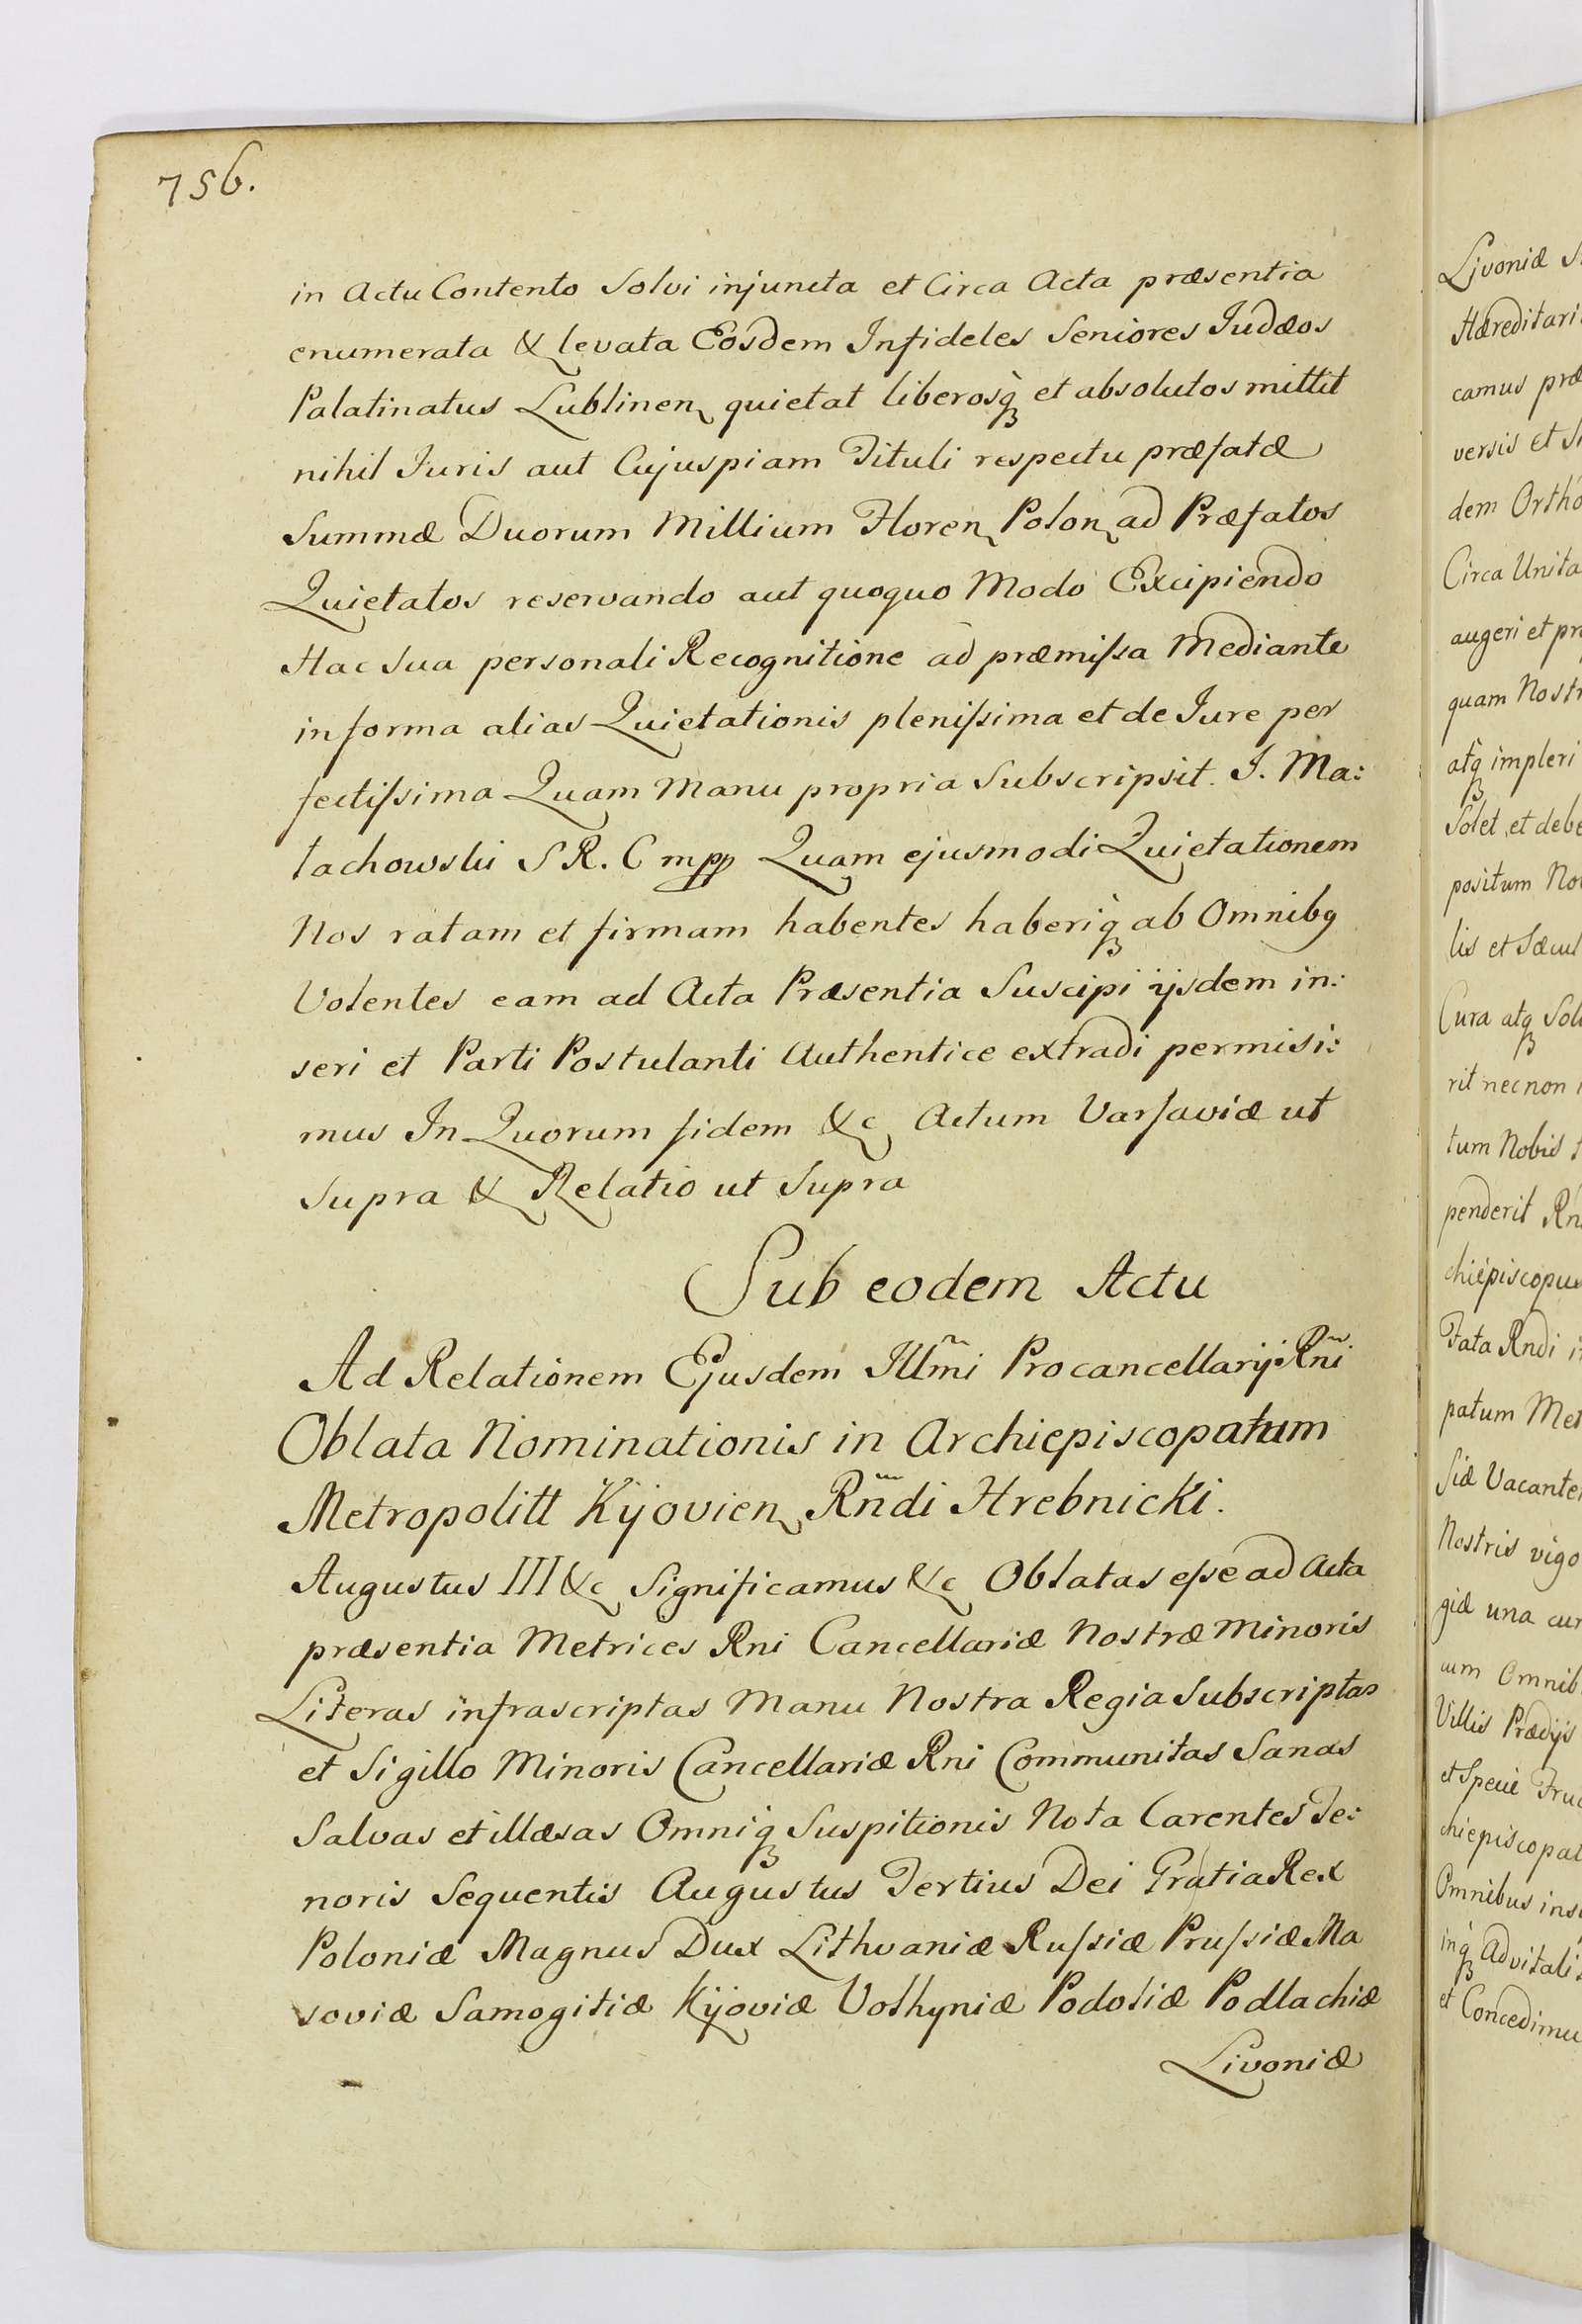 756.
in Actu Contento Solvi injuncta et Circa Acta præsentia
enumerata & levata Eosdem Infideles Seniores Judæos
Palatinatus Lublinen quietat liberosq, et absolutos mittit
nihil Juris aut Cujuspiam Tituli respectu præfatæ
Summæ Duorum Millium Floren Polon ad Præfatos
Quietatos reservando aut quoquo Modo Excipiendo
Hac Sua personali Recognitione ad præmissa Mediante
in forma alias Quietationis plenissima et de Jure per
fectissima Quam Manu propria Subscripsit. J. Ma:
łachowski S R. C mpp Quam ejusmodi Quietationem
Nos ratam et firmam habentes haberiq, ab Omnibq
Volentes eam ad Acta Præsentia Suscipi ijsdem in:
seri et Parti Postulanti Authentice extradi permisi:
mus In Quorum fidem &c Actum Varsaviæ ut
Supra & Relatio ut Supra
Sub eodem Actu
Ad Relationem Ejusdem Illm̃i Procancellarij Rñi
Oblata Nominationis in Archiepiscopatum
Metropolitt Kijovien Rñdi Hrebnicki.
Augustus III &c Significamus &c Oblatas esse ad Acta
præsentia Metrices Rni Cancellariæ Nostræ Minoris
Literas infrascriptas Manu Nostra Regia Subscriptas
et Sigillo Minoris Cancellariæ Rni Communitas Sanas
Salvas et illæsas Omniq, Suspitionis Nota Carentes Te:
noris Sequentis Augustus Tertius Dei Gratia Rex
Poloniæ Magnus Dux Lithvaniæ Russiæ Prussiæ Ma
soviæ Samogitiæ Kijoviæ Volhyniæ Podoliæ Podlachiæ
Livoniæ
Livoniæ
Hæreditari
camus præ
versis et
dem Ortho
Circa Unita
augeri et pr
quam Nostr
atq, impleri
Solet, et debe
positum No
lis et Sæcul
Cura atq, Soli
rit nec non
tum Nobis
penderit Rn
chiepiscopus
Fata Rndi i
patum Met
siæ Vacante
Nostris vigo
giæ una cum
cum Omnib
Villis Prædijs
et Specie Fruc
chiepiscopat
Omnibus ins
inq, Advitali
et Concedimu